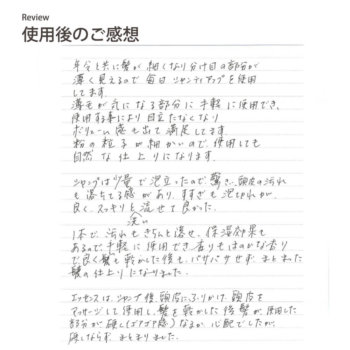 Review
使用後のご感想
年令と共に髪が細くなり分け目の部分が
薄く見えるので毎日リセンティアップを使用
してます。
薄毛が気になる部分に手軽に使用でき、
使用する事により目立たなくなり
ボリューム感も出て満足してます。
粉の粒子が細かいので、使用しても
自然な仕上りになります。
シャンプは少量で泡立ったので驚き、頭皮の汚れ
も落ちてる感があり、すすぎも泡切れが
良く、スッキリと流せて良かった。
洗い
1本で、汚れもきちんと落せ、保湿効果も
あるので、手軽に使用でき香りもほのかな香り
で良く髪も乾かした後も、パサパサせず、まとまった
髪の仕上りになりました。
エッセンスは、シャンプ後、頭皮にふりかけ、頭皮を
マッサージして使用し、髪を乾かした後、髪が、使用した
部分が硬く(ゴワゴワ感)なるか、心配でしたが、
硬くならず、まとまりました。